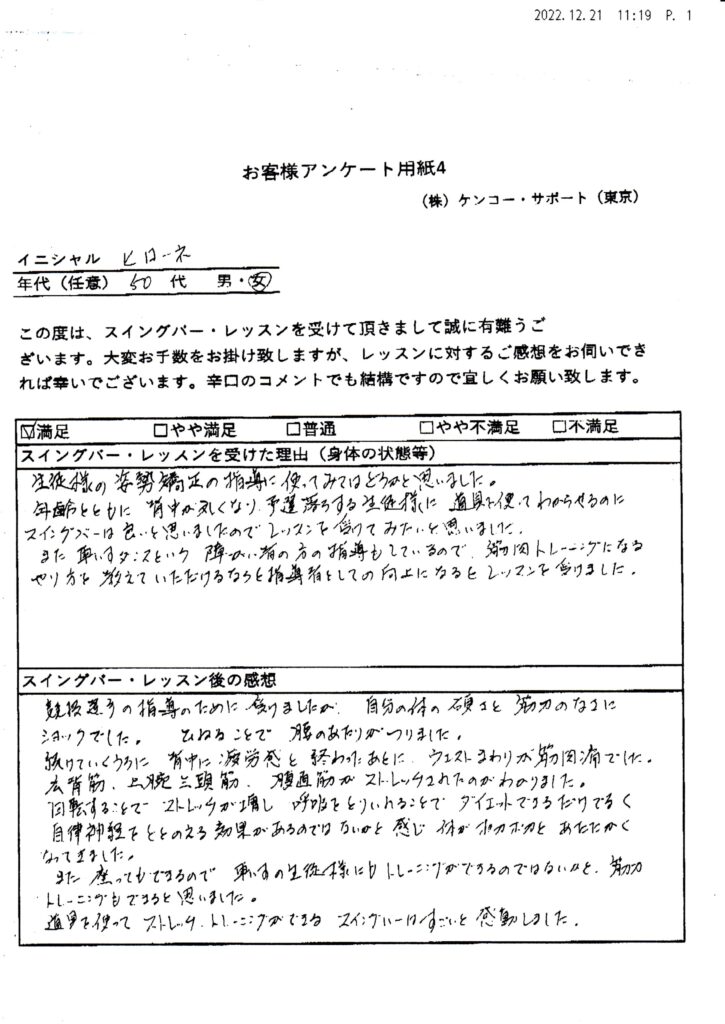 2022.12.21 11:19 P. 1
お客様アンケート用紙4
（株）ケンコー・サポート（東京）
イニシャル ヒローネ
年代（任意） 50 代 男・女
この度は、スイングバー・レッスンを受けて頂きまして誠に有難うご
ざいます。大変お手数をお掛け致しますが、レッスンに対するご感想をお伺いでき
れば幸いでございます。辛口のコメントでも結構ですので宜しくお願い致します。
☑満足 □やや満足 □普通 □やや不満足 □不満足
スイングバー・レッスンを受けた理由（身体の状態等）
生徒様の姿勢矯正の指導に使ってみてはどうかと思いました。
年齢とともに 背中が丸くなり 予選落ちする生徒様に 道具を使ってわからせるのに
スイングバーは良いと思いましたのでレッスンを受けてみたいと思いました。
また 車いすダンスという 障がい者の方の指導もしているので、筋肉トレーニングになる
やり方を教えていただけるならと指導者としての向上になるとレッスンを受けました。
スイングバー・レッスン後の感想
競技選手の指導のために受けましたが、自分の体の硬さと筋力のなさに
ショックでした。 ひねることで 腰のあたりがつりました。
続けていくうちに 背中に疲労感と 終わったあとに、ウエストまわりが筋肉痛でした。
広背筋、上腕三頭筋、腹直筋がストレッチされたのがわかりました。
回転することで ストレッチが増し 呼吸をとりいれることで ダイエットできるだけでなく
自律神経をととのえる効果があるのではないかと感じ 体がポカポカと あたたかく
なってきました。
また 座ってもできるので 車いすの生徒様にもトレーニングができるのではないかと、筋力
トレーニングもできると思いました。
道具を使って ストレッチ、トレーニングができる スイングバーはすごいと感動しました。